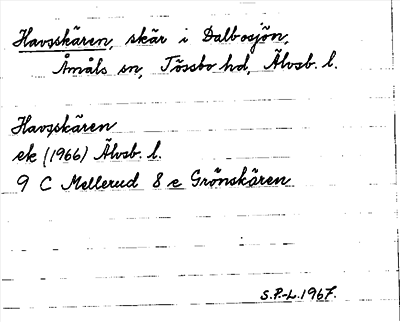 Havsskären, skär i Dalbosjön,
Åmåls sn, Tössbo hd, Älvsb. l.
Havsskären
ek (1966) Älvsb. l.
9 C Mellerud 8 e Grönskären
S.P.-L. 1967.